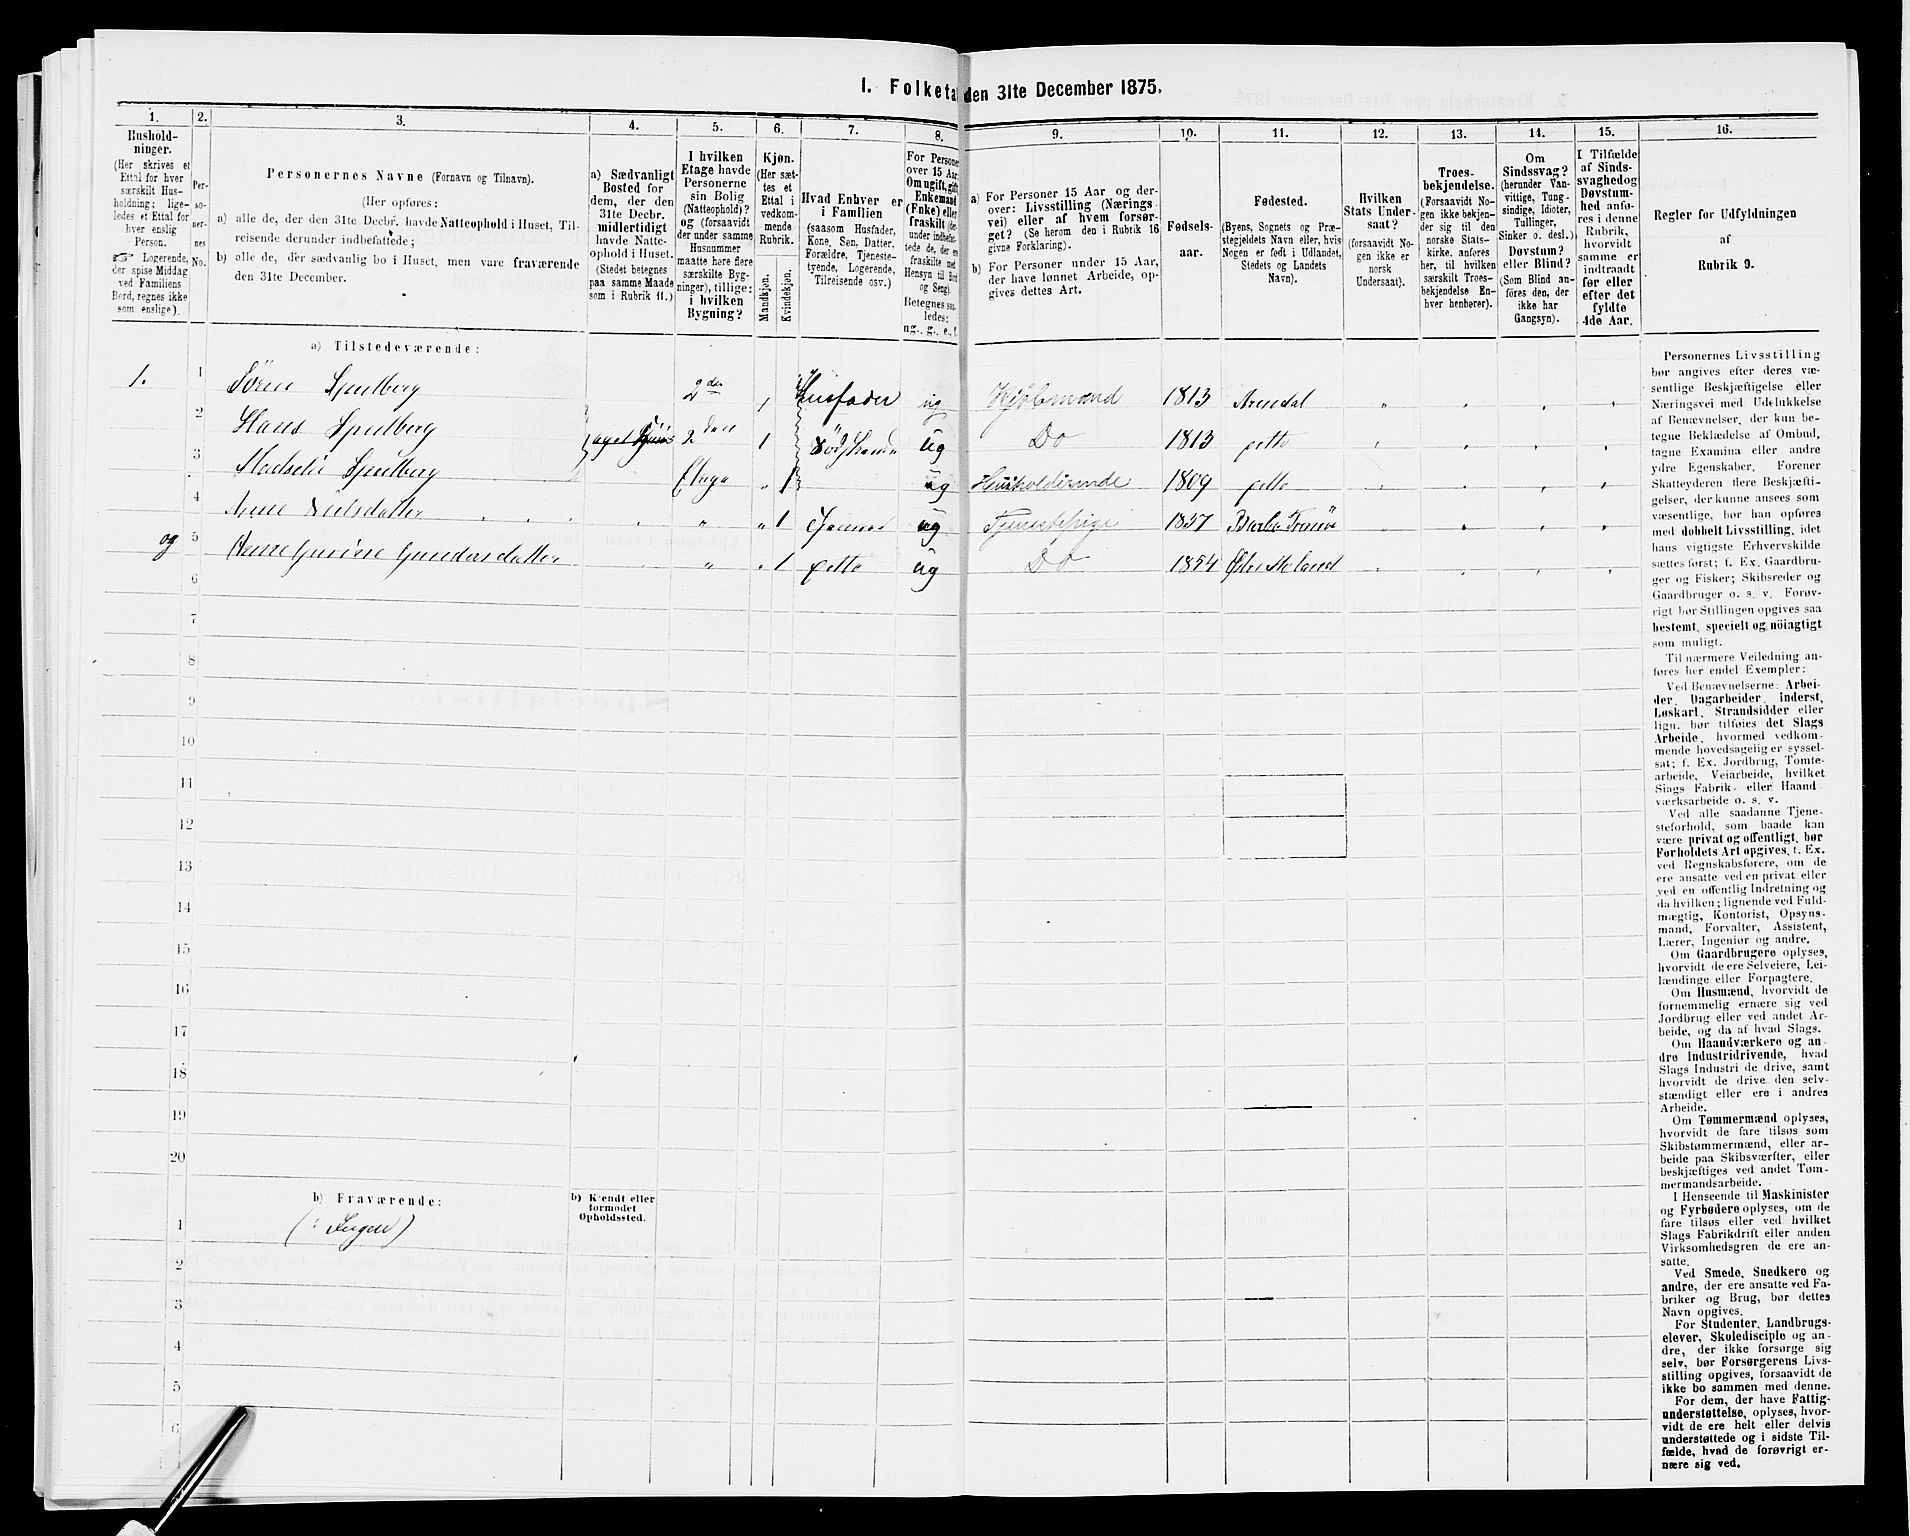 I. Folketal den 31te December 1875.
1.
Hushold-
ninger.
(Her skrives et
Ettal for hver
særskilt Hus-
holdning; lige-
ledes et Ettal for
hver enslig
Person.
☞ Logerende,
der spise Middag
ved Familiens
Bord, regnes ikke
som enslige).
2.
Per-
so-
ner-
nes
No.
3.
Personernes Navne (Fornavn og Tilnavn).
(Her opføres:
a) alle de, der den 31te Decbr. havde Natteophold i Huset, Til-
reisende derunder indbefattede;
b) alle de, der sædvanlig bo i Huset, men vare fraværende
den 31te December.
4.
a) Sædvanligt
Bosted for
dem, der den
31te Decbr.
midlertidigt
havde Natte-
ophold i Huset.
(Stedet betegnes
paa samme Maade
som i Rubrik 11.)
5.
I hvilken
Etage havde
Personerne
sin Bolig
(Natteophold)?
og (forsaavidt
der under samme
Husnummer
maatte høre flere
særskilte Byg-
ninger), tillige:
i hvilken
Bygning?
6.
Kjøn.
(Her sæt-
tes et
Ettal i
vedkom-
mende
Rubrik.
Mandkjøn.
Kvindekjøn.
7.
Hvad Enhver er
i Familien
(saasom Husfader,
Kone, Søn, Datter,
Forældre, Tjeneste-
tyende, Logerende,
Tilreisende osv.)
8.
For Personer
over 15 Aar:
Om ugift, gift,
Enkemand
(Enke) eller
fraskilt (der-
under indbefat-
tede de, der ere
fraskilte med
Hensyn til Bord
og Seng).
Betegnes saa-
ledes:
ug., g., e., f.
9.
a) For Personer 15 Aar og der-
over: Livsstilling (Nærings-
vei) eller af hvem forsør-
get? (Se herom den i Rubrik 16
givne Forklaring).
b) For Personer under 15 Aar,
der have lønnet Arbeide, op-
gives dettes Art.
10.
Fødsels-
aar.
11.
Fødested.
(Byens, Sognets og Præ-
stegjeldets Navn eller, hvis
Nogen er født i Udlandet,
Stedets og Landets
Navn).
12.
Hvilken
Stats Under-
saat?
(forsaavidt No-
gen ikke er
norsk
Undersaat).
13.
Troes-
bekjendelse.
(Forsaavidt No-
gen ikke bekjen-
der sig til den
norske Stats-
kirke, anføres
her, til hvilken
Troes-
bekjendelse En-
hver henhører).
14.
Om
Sindssvag?
(herunder Van-
vittige, Tung-
sindige, Idioter,
Tullinger,
Sinker o. desl.)
Døvstum?
eller Blind?
(Som Blind an-
føres den, der
ikke har
Gangsyn).
15.
I Tilfælde
af Sinds-
svaghed og
Døvstum-
hed anfø-
res i denne
Rubrik,
hvorvidt
samme er
indtraadt
før eller
efter det
fyldte
4de Aar.
16.
Regler for Udfyldningen
af
Rubrik 9.
a) Tilstedeværende:
1. 1 Sören Spidberg 2den 1 Husfader ug 1813 Arendal
2 Hans Spidberg 2den 1 ug Do 1813 Ditto
3 Spidberg Etage 1 ug Husholderinde 1809 Ditto
4 Anne Nilsdatter 1 ug Tjenestepige 1857 Barbo Tromö
og 5 Gundersdatter 1 Ditto ug Do 1854 Østre Moland
6
7
8
9
10
11
12
13
14
15
16
17
18
19
20
b) Fraværende:
b) Kjendt eller
formodet
Opholdssted.
1 (: Ingen)
2
3
4
5
6
Personernes Livsstilling
bør angives efter deres væ-
sentlige Beskjæftigelse eller
Næringsvei med Udelukkelse
af Benævnelser, der kun be-
tegne Beklædelse af Ombud,
tagne Examina eller andre
ydre Egenskaber. Forener
Skatteyderen flere Beskjæfti-
gelser, der kunne ansees som
væsentlige, bør han opføres
med dobbelt Livsstilling, idet
hans vigtigste Erhvervskilde
sættes først; f. Ex. Gaardbru-
ger og Fisker; Skibsreder og
Gaardbruger o. s. v. Forøv-
rigt bør Stillingen opgives saa
bestemt, specielt og nöiagtigt
som muligt.
Til nærmere Veiledning an-
føres her endel Exempler:
Ved Benævnelserne: Arbei-
der, Dagarbeider, Inderst,
Løskarl, Strandsidder eller
lign. bør tilføies det Slags
Arbeide, hvormed vedkom-
mende hovedsagelig er syssel-
sat; f. Ex. Jordbrug, Tomte-
arbeide, Veiarbeide, hvilket
Slags Fabrik- eller Haand-
værksarbeide o. s. v.
Ved alle saadanne Tjene-
steforhold, som baade kan
være privat og offentligt, bør
Forholdets Art opgives, f. Ex.
ved Regnskabsførere, om de
ere ansatte ved en privat eller
ved en offentlig Indretning og
da hvilken; lignende ved Fuld-
mægtig, Kontorist, Opsyns-
mand, Forvalter, Assistent,
Lærer, Ingeniør og andre.
Om Gaardbrugere oplyses,
hvorvidt de ere Selveiere, Lei-
lændinge eller Forpagtere.
Om Husmænd, hvorvidt de
fornemmelig ernære sig ved
Jordbrug eller ved andet Ar-
beide, og da af hvad Slags.
Om Haandværkere og an-
dre Industridrivende, hvad
Slags Industri de drive, samt
hvorvidt de drive den selv-
stændigt eller ere i andres
Arbeide.
Om Tømmermænd oplyses,
hvorvidt de fare tilsøs som
Skibstømmermænd, eller ar-
beide paa Skibsværfter, eller
beskjæftiges ved andet Tøm-
mermandsarbeide.
I Henseende til Maskinister
og Fyrbødere oplyses, om de
fare tilsøs eller ved hvilket
Slags Fabrikdrift eller anden
Virksomhedsgren de ere an-
satte.
Ved Smede, Snedkere og
andre, der ere ansatte ved Fa-
briker og Brug, bør dettes
Navn opgives.
For Studenter, Landbrugs-
elever, Skoledisciple og an-
dre, der ikke forsørge sig
selv, bør Forsørgerens Livs-
stilling opgives, forsaavidt de
ikke bo sammen med denne.
For dem, der have Fattig-
understøttelse, oplyses, hvor-
vidt de ere helt eller delvis
understøttede og i sidste Til-
fælde, hvad de forøvrigt er-
nære sig ved.